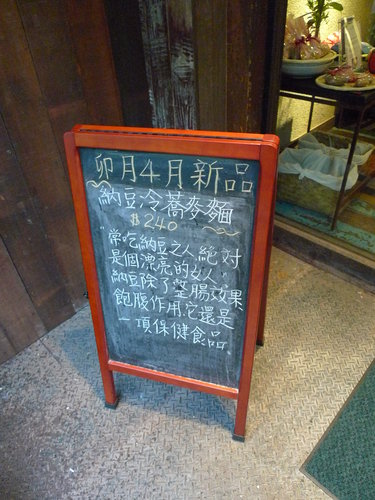 卯月4月新品
納豆冷蕎麥麵
$240
"常吃納豆之人,絕對
是個漂亮的女人"
納豆除了整腸效果
飽腹作用.它還是
一項保健食品。